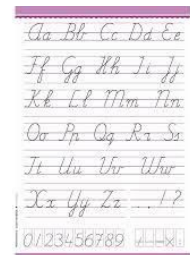 Aa Bb Cc Dd Ee
Ff Gg Hh Ii Jj
Kk Ll Mm Nn
Oo Pp Qq Rr Ss
Tt Uu Vv Ww
Xx Yy Zz . , ! ?
0123456789